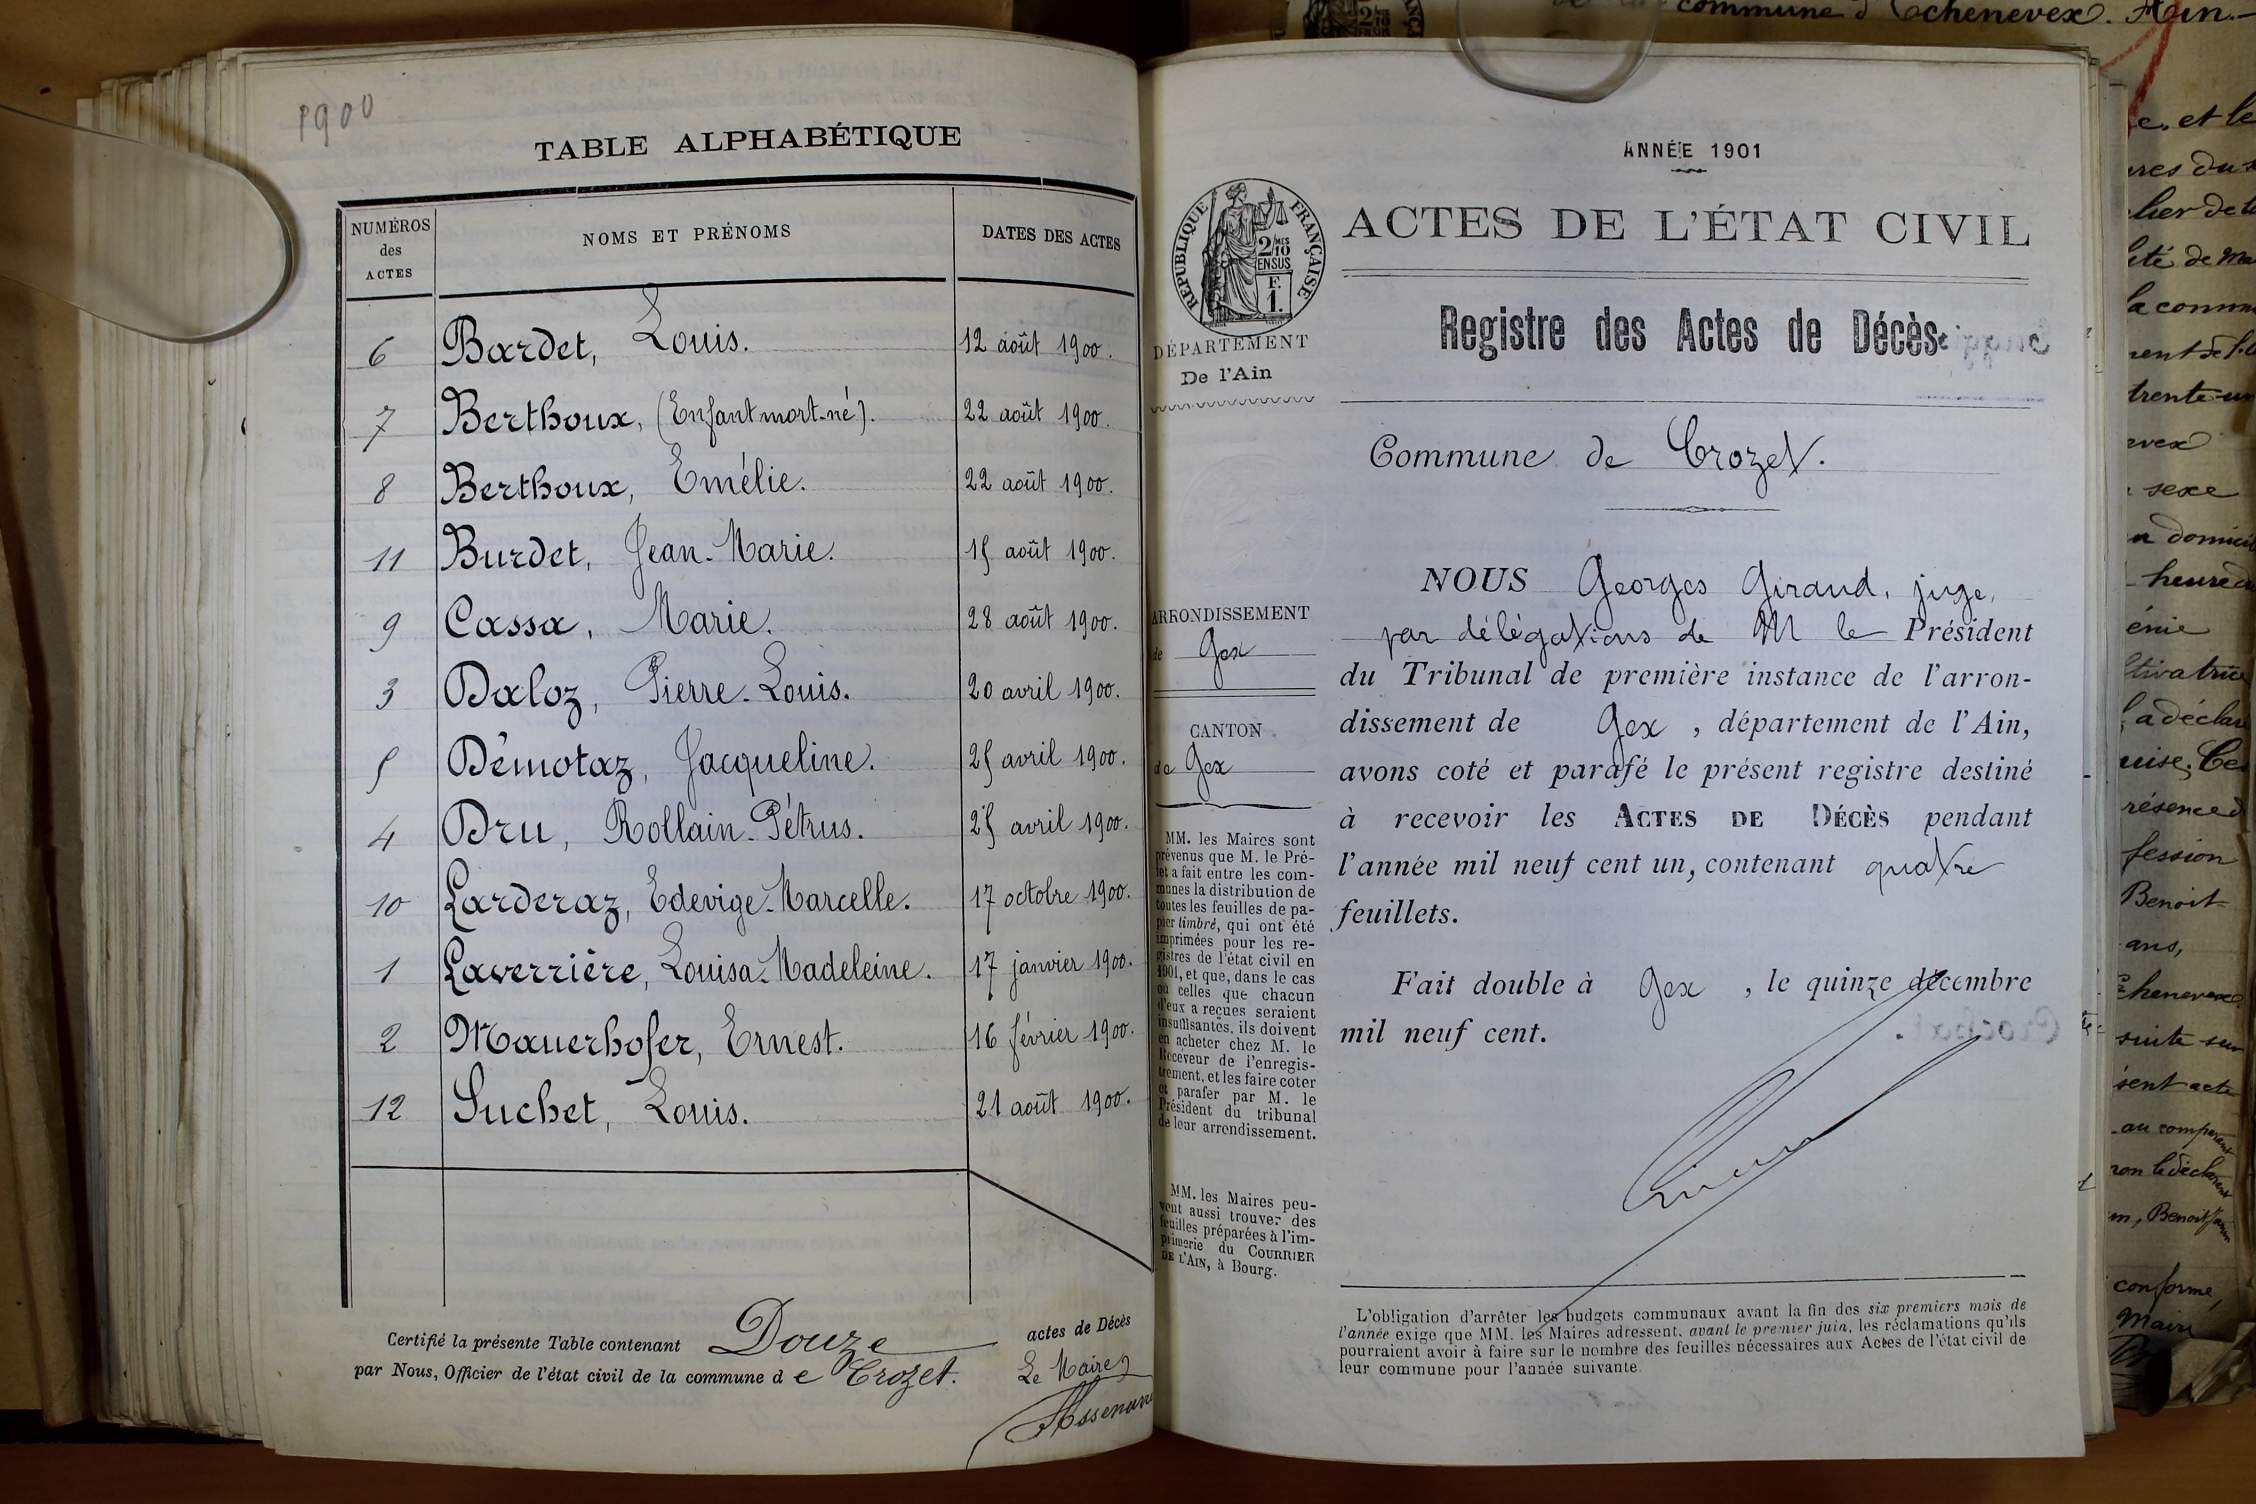 1900
TABLE ALPHABÉTIQUE
NUMÉROS des ACTES NOMS ET PRÉNOMS DATES DES ACTES
6 Bardet, Louis. 12 août 1900.
7 Berthoux, (Enfant mort-né). 22 août 1900.
8 Berthoux, Emélie. 22 août 1900.
11 Burdet, Jean-Marie. 15 août 1900.
9 Cassa, Marie. 28 août 1900.
3 Daloz, Pierre-Louis. 20 avril 1900.
5 Démotaz, Jacqueline. 25 avril 1900.
4 Dru, Rollain-Pétrus. 25 avril 1900.
10 Larderaz, Edevige-Marcelle. 17 octobre 1900.
1 Laverrière, Louisa-Madeleine. 17 janvier 1900.
2 Mauerhofer, Ernest. 16 février 1900.
12 Suchet, Louis. 21 août 1900.
Certifié la présente Table contenant Douze actes de Décès
par Nous, Officier de l'état civil de la commune de Crozet.
Le Maire
ANNÉE 1901
RÉPUBLIQUE FRANÇAISE
2/10 EN SUS
F. 1.
ACTES DE L'ÉTAT CIVIL
Registre des Actes de Décès
DÉPARTEMENT
De l'Ain
Commune de Crozet.
ARRONDISSEMENT
de Gex
CANTON
de Gex
MM. les Maires sont
prévenus que M. le Pré-
fet a fait entre les com-
munes la distribution de
toutes les feuilles de pa-
pier timbré, qui ont été
imprimées pour les re-
gistres de l'état civil en
1901, et que, dans le cas
où celles que chacun
d'eux a reçues seraient
insuffisantes, ils doivent
en acheter chez M. le
Receveur de l'enregis-
trement, et les faire coter
et parafer par M. le
Président du tribunal
de leur arrondissement.
MM. les Maires peu-
vent aussi trouver des
feuilles préparées à l'im-
primerie du COURRIER
DE L'AIN, à Bourg.
NOUS Georges Giraud, juge,
par délégations de M le Président
du Tribunal de première instance de l'arron-
dissement de Gex, département de l'Ain,
avons coté et parafé le présent registre destiné
à recevoir les ACTES DE DÉCÈS pendant
l'année mil neuf cent un, contenant quatre
feuillets.
Fait double à Gex, le quinze décembre
mil neuf cent.
L'obligation d'arrêter les budgets communaux avant la fin des six premiers mois de
l'année exige que MM. les Maires adressent, avant le premier juin, les réclamations qu'ils
pourraient avoir à faire sur le nombre des feuilles nécessaires aux Actes de l'état civil de
leur commune pour l'année suivante
commune d'Echenevex. Ain.
e, et le
la comm
trente-un
sexe
heure
énie
résence
Benoit
ans,
suite sur
au comparant
conforme,